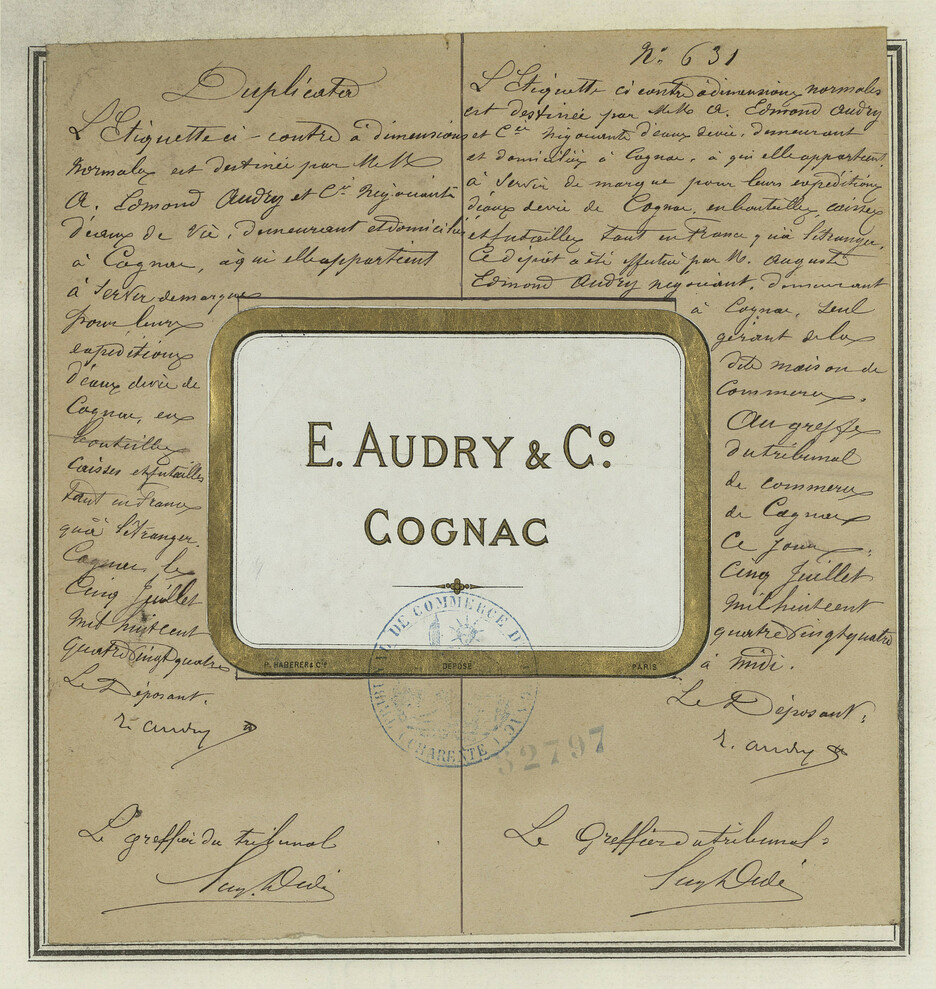 Duplicata
L'Etiquette ci-contre à dimensions
normales est destinée par MM
A. Edmond Audry et Cie Négociants
d'eaux de Vie, demeurant et domiciliés
à Cognac, à qui elle appartient
à servir de marque
pour leurs
expéditions
d'eaux de vie de
Cognac, en
bouteilles
caisses et futailles
tant en France
qu'à l'étranger.
Cognac le
Cinq Juillet
mil huit cent
quatre vingt quatre
Le Déposant.
E. Audry
Le greffier du tribunal
N° 631
L'Etiquette ci contre à dimensions normales
est destinée par MM. A. Edmond Audry
et Cie Négociants d'eaux de vie, demeurant
et domiciliés à Cognac, à qui elle appartient
à servir de marque pour leurs expéditions
d'eaux de vie de Cognac, en bouteilles, caisses
et futailles tant en France qu'à l'étranger.
Ce dépôt a été effectué par M. Auguste
Edmond Audry négociant, demeurant
à Cognac, seul
gérant de la
dite maison de
Commerce.
Au greffe
du tribunal
de commerce
de Cognac
Ce jour
Cinq Juillet
mil huit cent
quatre vingt quatre
à midi.
Le Déposant:
E. Audry
Le Greffier du tribunal:
E. AUDRY & Co.
COGNAC
P. HABERER & Cie
DÉPOSÉ
PARIS
TRIBUNAL DE COMMERCE DE COGNAC
(CHARENTE)
32797